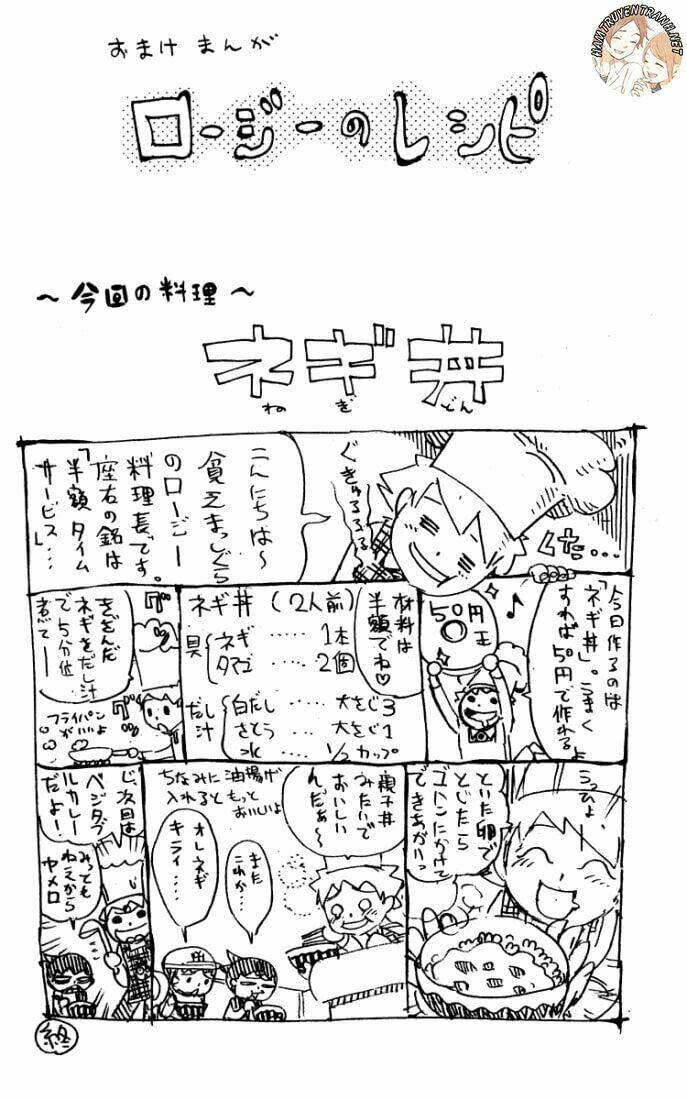 おまけまんが
ロージーのレシピ
HAMTRUYENTRANH.NET
～今回の料理～
ネギ丼
ねぎどん
ぐきゅるるるる
こんにちは～
貧乏まっしぐら
のロージー
料理長です。
座右の銘は
「半額タイム
サービス」…
くた…
今日作るのは
「ネギ丼」。うまく
すれば50円で作れるよ
うっひょ、
50円
王
材料は
半額でね♡
ネギ丼（2人前）
具
ネギ……1本
タマゴ……2個
だし汁
白だし……大さじ3
さとう……大さじ1
水……1/2カップ
きざんだ
ネギをだし汁
で5分位
煮て―
フライパン
がいいよ
といた卵で
とじたら
ゴハンにかけて
できあがりっ
親子丼
みたいで
おいしい
んだぁ～
ちなみに油揚げ
入れるともっと
おいしいよ
また
これか…
オレネギ
キライ…
じ、次回は
ベジタブ
ルカレー
だよ！
みっとも
ねえから
ヤメロ
終